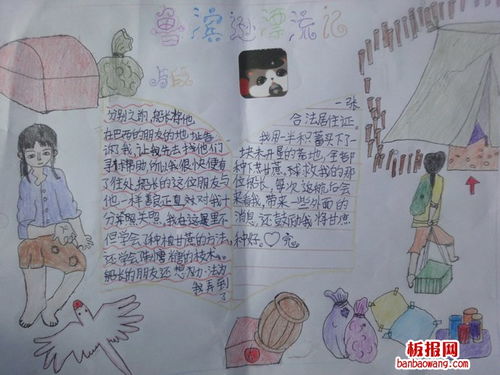 鲁滨逊漂流记
片段
分别之前,船长将他
在巴西的朋友的地址告
诉我,让我先去找他们
寻求帮助,所以我很快便有
了住处。船长的这位朋友与
他一样都正直,对我十
分关照。我在这里不
但学会了种植甘蔗的方法,
还学会制糖的技术。
船长的朋友还想办法为
我弄到了
一张
合法居住证。
我用一半积蓄买下了一
块未开垦的荒地,全部
种下甘蔗。拯救我的那
位船长,每次返航后会
来看我,带来一些外面的
消息,还鼓励我将甘蔗
种好。♡完
板报网
banbaowang.com